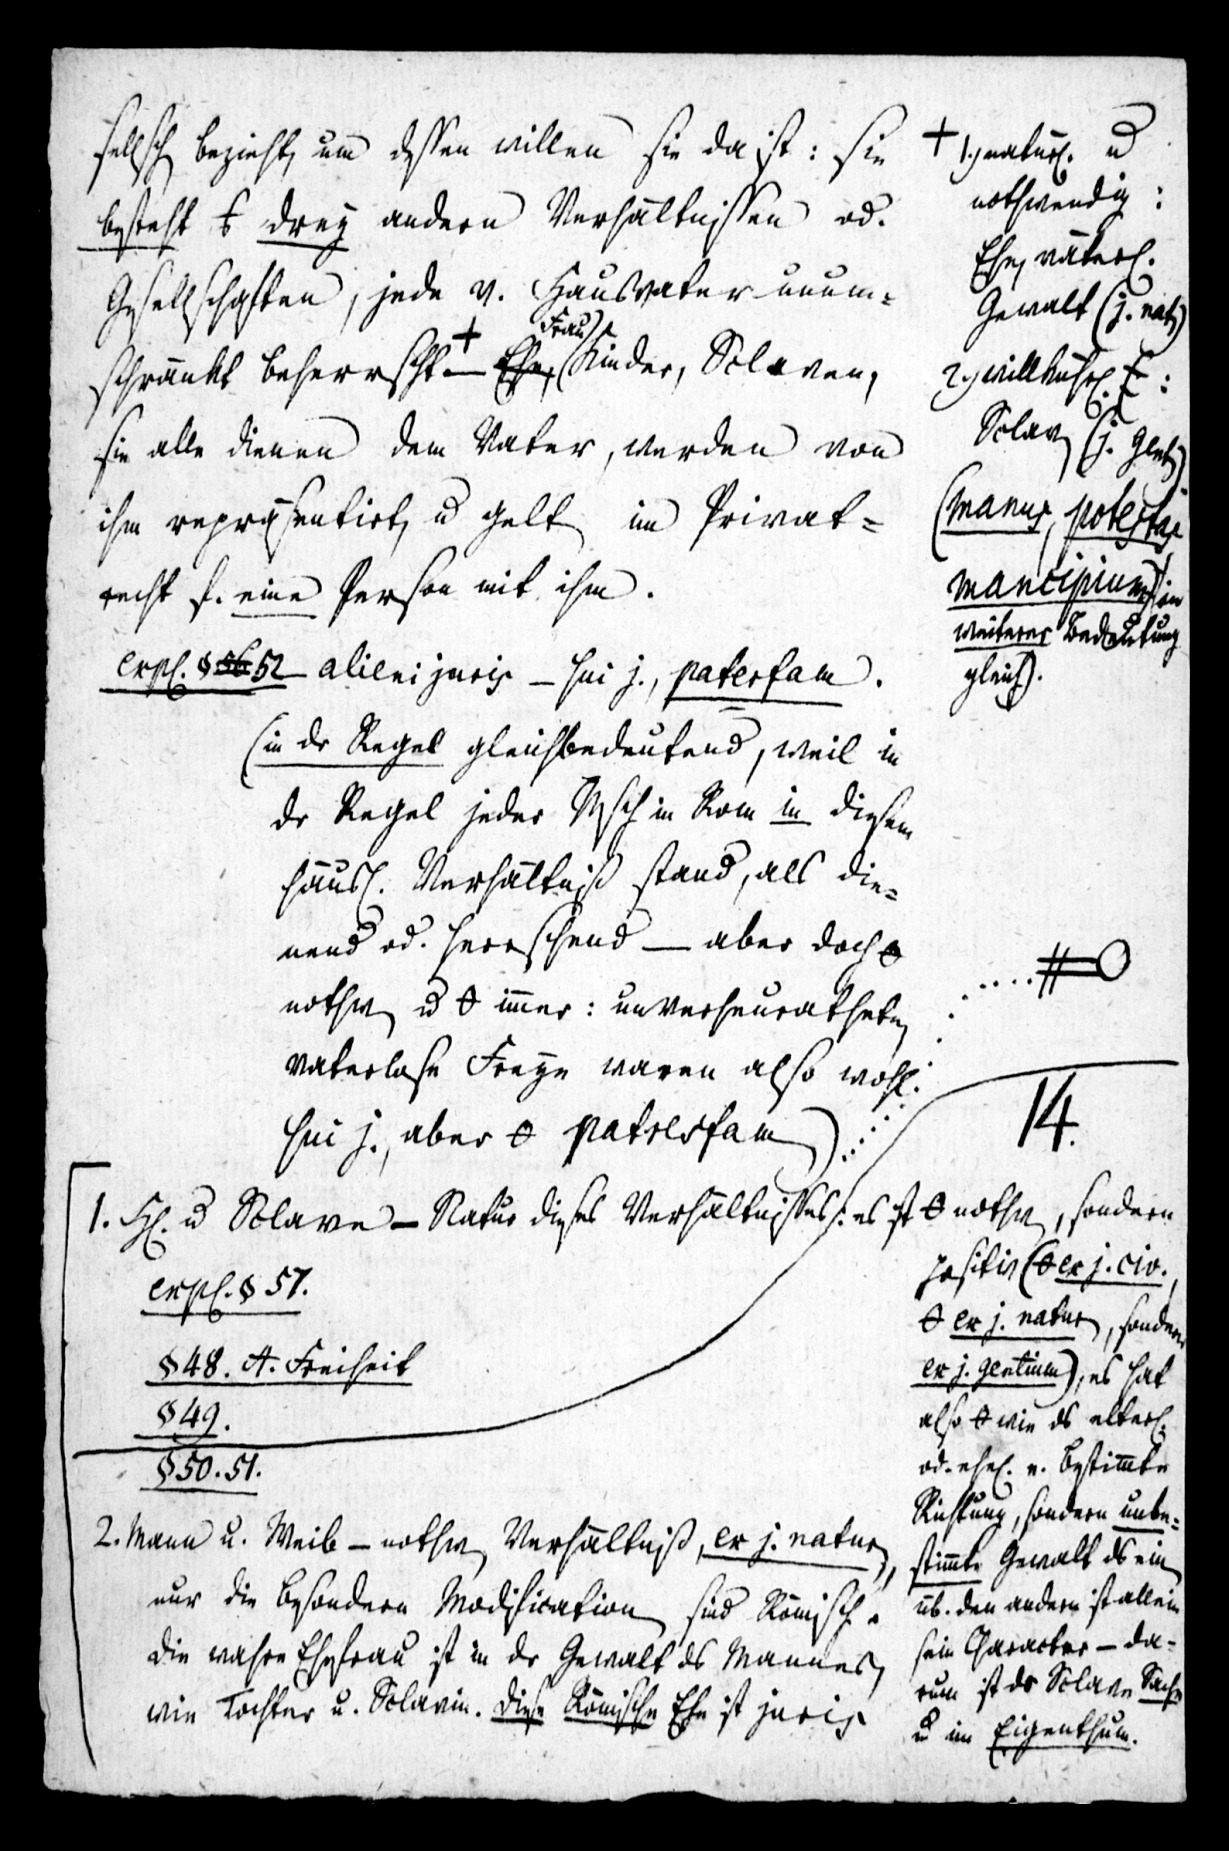 sellsch bezieht, um dessen willen sie da ist: sie
besteht drey andern Verhältnissen od.
Gesellschaften, jede v. Hausvater unum=
schränkt beherrscht + — Ehe, (Frau) Kinder, Sclaven,
sie alle dienen dem Vater, werden von
ihm repräsentirt, u gelt im Privat=
recht f. eine Person mit ihm.
expl. § 56 52 — alieni juris — sui j., paterfam.
(in dr Regel gleichbedeutend, weil in
dr Regel jeder Msch in Rom in diesem
häusl. Verhältniß stand, als die=
nend od. herrschend — aber doch θ
nothw u θ immer: unverheurathete,
vaterlose Freye waren also wohl
sui j., aber θ patresfam)
+ 1.) natürl. u
nothwendig:
Ehe, väterl.
Gewalt (j. nat)
2.) willkührl.:
Sclav (j. Gent)
(manus, potestas
mancipium) in
weiterer Bedeutung
gleich).
#
14.
1. H. u Sclave — Natur dieses Verhältnisses: es ist θ nothw, sondern
positiv (θ ex j. civ.,
θ ex j. natur, sondern
ex j. gentium), es hat
also θ wie ds elterl.
od. ehel. e. bestimmte
Richtung, sondern unbe=
stimmte Gewalt ds ein
üb. den andern ist allein
sein Character — da-
rum ist dr Sclave Sache
u im Eigenthum.
expl. § 57.
§ 48. A. Freiheit
§ 49.
§ 50. 51.
2. Mann u. Weib — nothw Verhältniß, ex j. natur,
nur die besondern Modification sind Römisch.
die wahre Ehefrau ist in dr Gewalt ds Mannes,
wie Tochter u. Sclavin. diese Römische Ehe ist juris